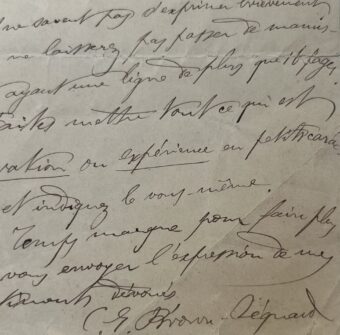 ne savent pas s'exprimer brièvement
ne laisserez pas passer de manus-
ayant une ligne de plus que 16 pages.
Faites mettre tout ce qui est
vation ou expérience en petits carac
et indiquez le vous-même.
Temps manque pour faire plus
vous envoyer l'expression de mes
timents dévoués
C. E. Brown-Séquard